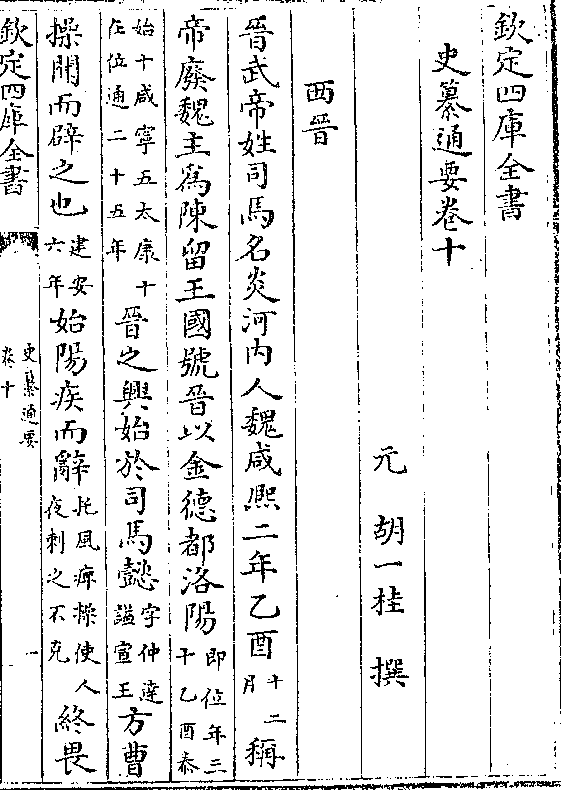 欽定四庫全書
史纂通要卷十
元 胡一桂 撰
西晉
晉武帝姓司馬名炎河内人魏咸熙二年乙酉十二月稱
帝廢魏主為陳留王國號晉以金德都洛陽即位年三十乙酉泰
始十咸寧五太康十在位通二十五年晉之興始於司馬懿字仲達謚宣王方曹
操聞而辟之也建安六年始陽疾而辭托風痹操使人夜刺之不克終畏
欽定四庫全書
史纂通要
卷十
一